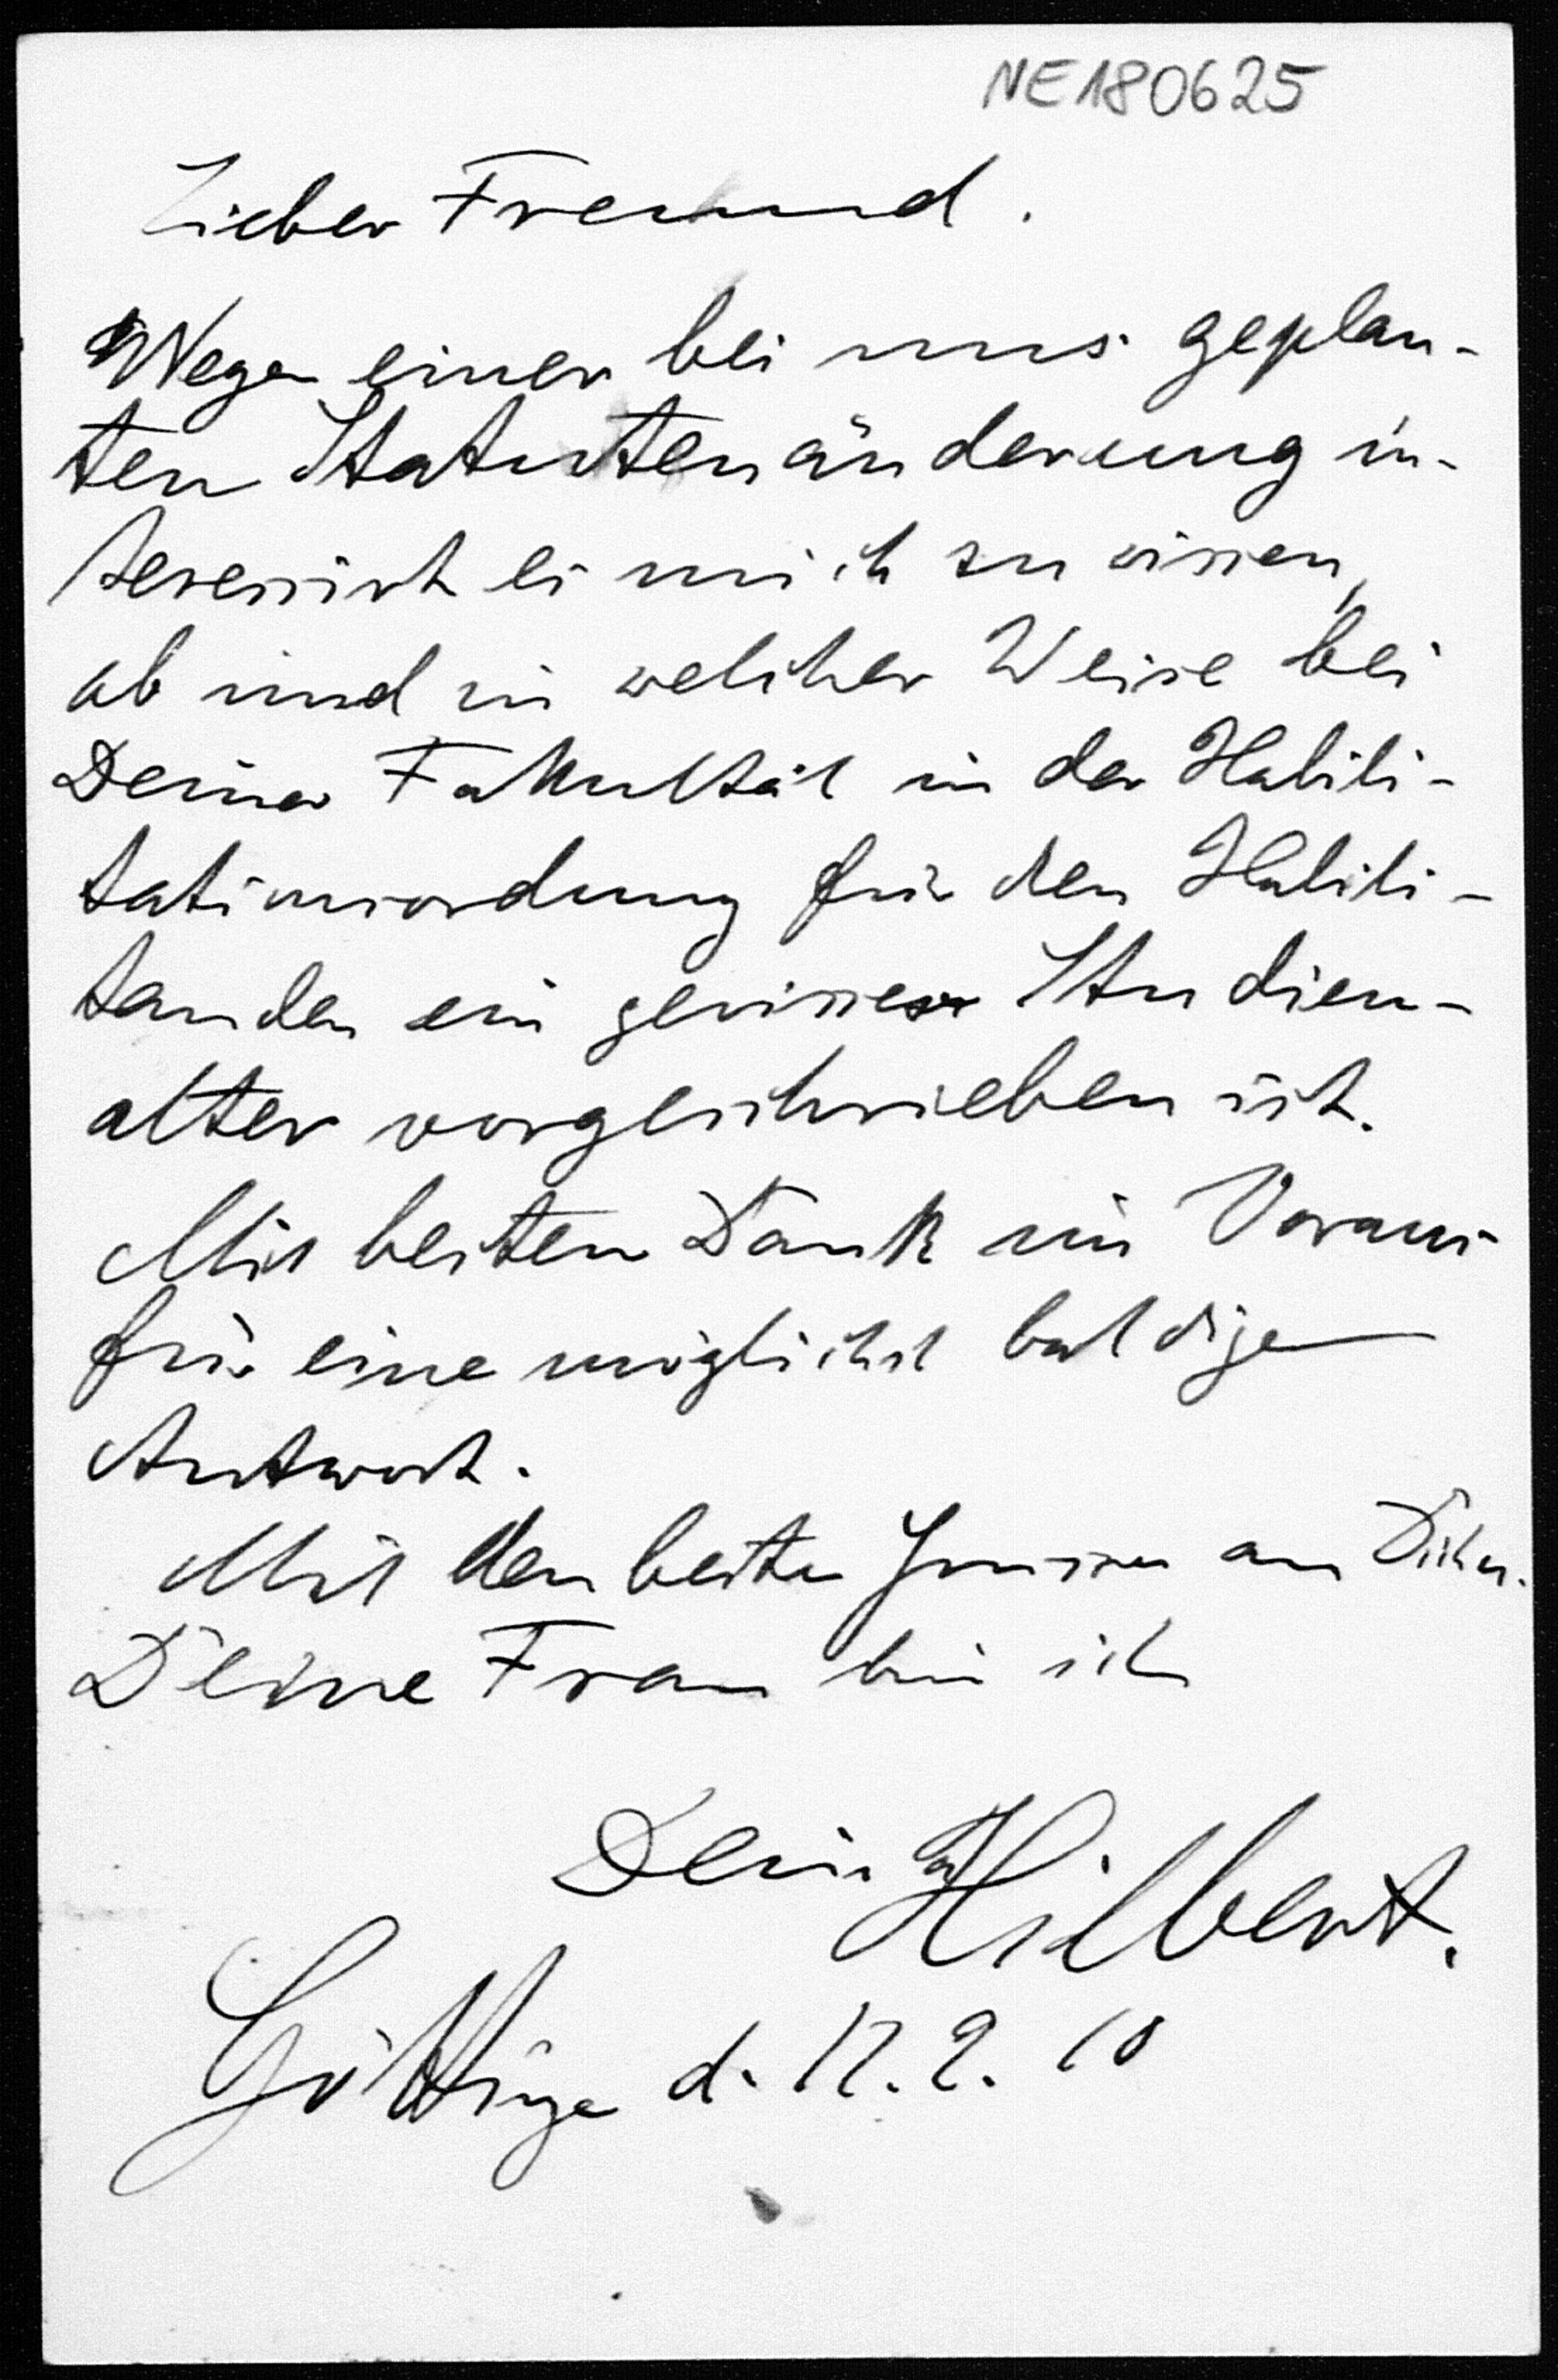 NE180625
Lieber Freund.
Wegen einer bei uns geplan-
ten Statutenänderung in-
teressirt es mich zu wissen,
ob und in welcher Weise bei
Deiner Fakultät in der Habili-
tationsordnung für den Habili-
tanden ein gewisses Studien-
alter vorgeschrieben ist.
Mit besten Dank im Voraus
für eine möglichst baldige
Antwort.
Mit den besten Grüssen an Dich u.
Deine Frau bin ich
Dein Hilbert.
Göttingen d. 12. 2. 10